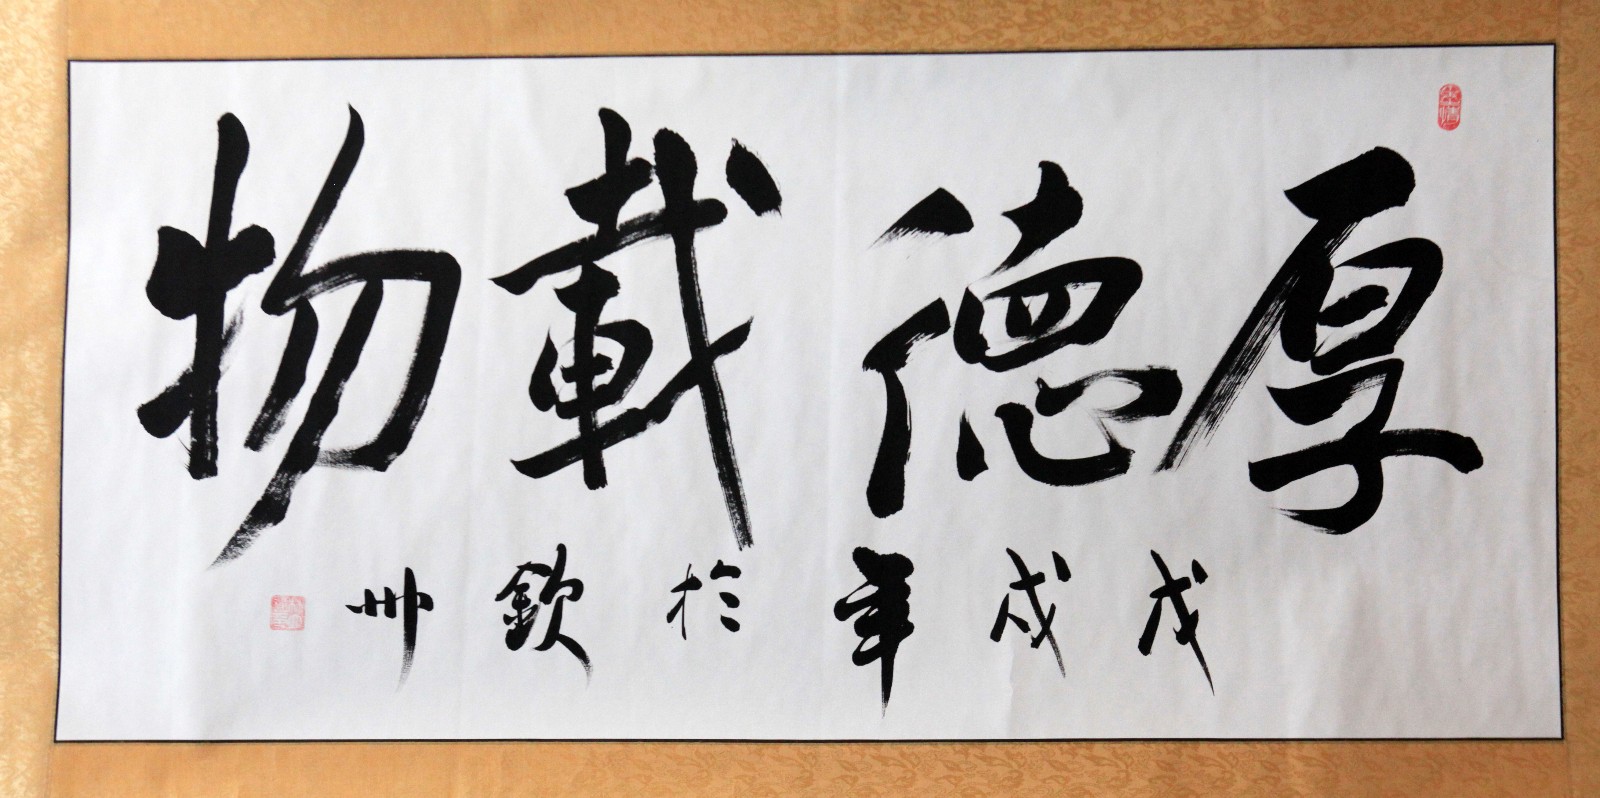 厚德載物
戊戌年於欽州